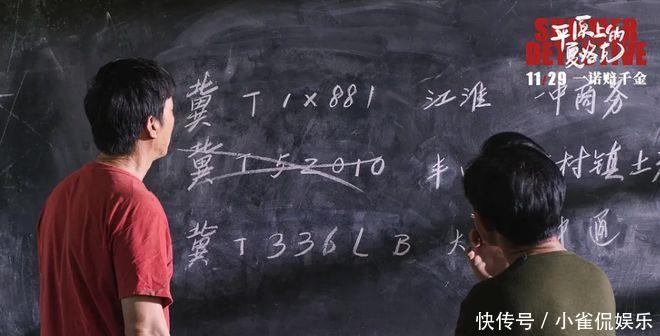 SUMMER
DETECTIVE
平原上的
夏洛克
11 29 一诺赔千金
冀 T 1×881 江淮 中商务
冀 T 52010 丰 村镇土
冀 T 336LB 大 中通
快传号 / 小雀侃娱乐